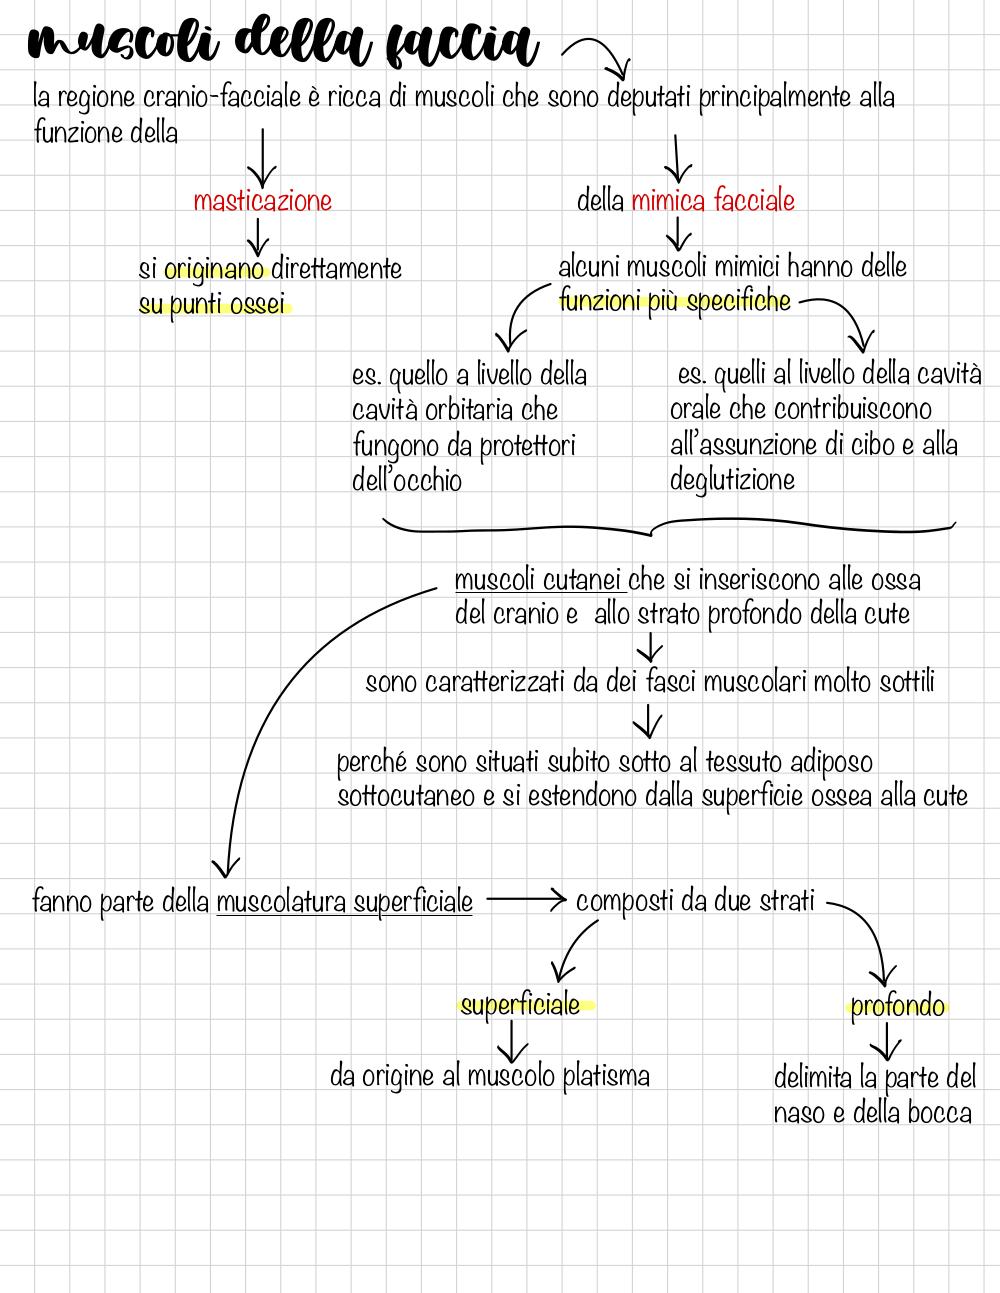 muscoli della faccia
la regione cranio-facciale è ricca di muscoli che sono deputati principalmente alla
funzione della
masticazione
della mimica facciale
si originano direttamente
su punti ossei
alcuni muscoli mimici hanno delle
funzioni più specifiche
es. quello a livello della
cavità orbitaria che
fungono da protettori
dell'occhio
es. quelli al livello della cavità
orale che contribuiscono
all'assunzione di cibo e alla
deglutizione
muscoli cutanei che si inseriscono alle ossa
del cranio e allo strato profondo della cute
sono caratterizzati da dei fasci muscolari molto sottili
perché sono situati subito sotto al tessuto adiposo
sottocutaneo e si estendono dalla superficie ossea alla cute
fanno parte della muscolatura superficiale
composti da due strati
superficiale
profondo
da origine al muscolo platisma
delimita la parte del
naso e della bocca